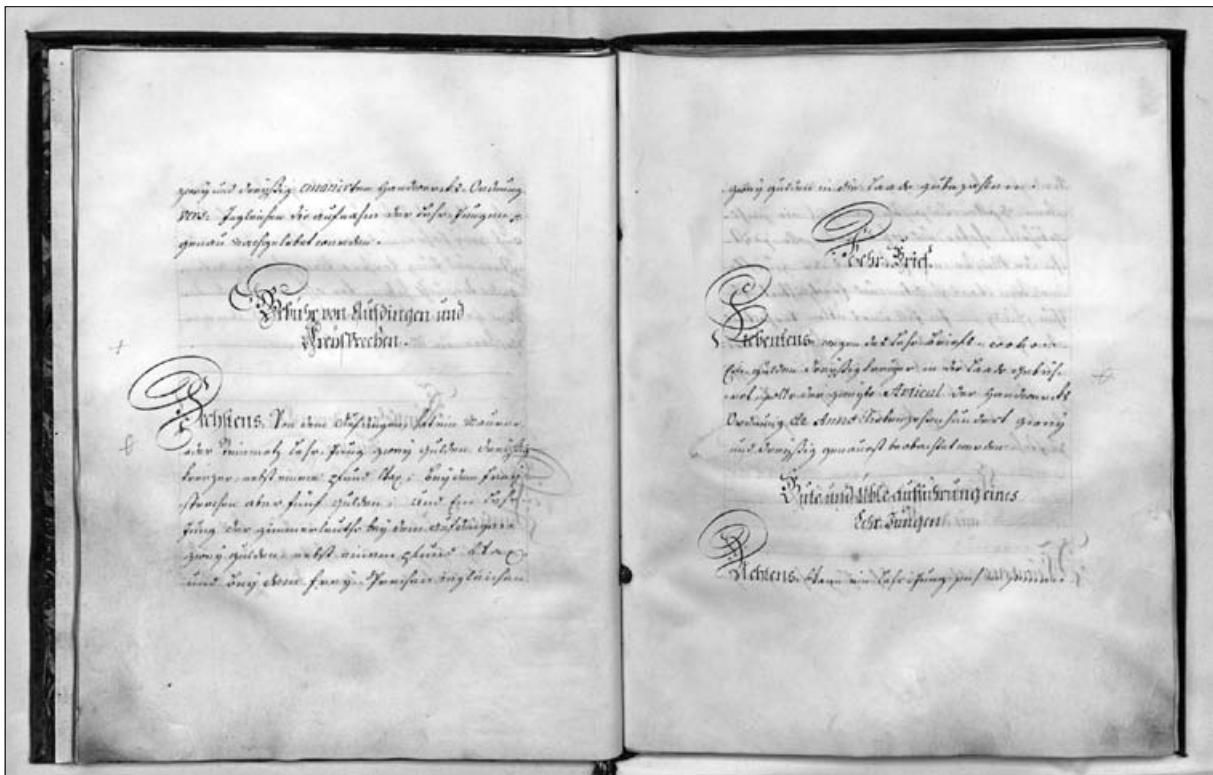 zwey und dreyßig emanirten Handwercks-Ordnung
ingleichen die Aufnahm der Lehr-Jungen
genau nachgelebet werden.
Gebühr von Aufdingen und
Freysprechen.
Sechstens. Von dem Aufdingen hat ein Maurer
oder Steinmetz Lehr-Jung zwey Gulden dreyßig
Kreuzer, nebst einem Pfund Wax, bey dem Frey
sprechen aber fünf Gulden; Und Ein Lehr-
Jung der Zimmerleuthe bey dem Aufdingen
zwey Gulden, nebst einem Pfund Wax,
und bey dem Frey-Sprechen ingleichen
zwey Gulden in die Laade zubezahlen.
Lehr-Brief.
Siebentens. wegen des Lehr-Briefs
Gulden dreyßig Kreuzer in die Laade
solle der zweyte Articul der Handwercks
Ordnung de Anno Siebenzehenhundert zwey
und dreyßig genauest beobachtet werden
Gute und üble Aufführung eines
Lehr-Jungen.
Achtens. Wann ein Lehr-Jung sich